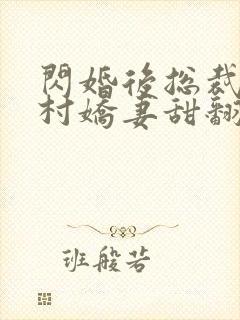 閃婚後總裁
村嬌妻甜翻
班般若